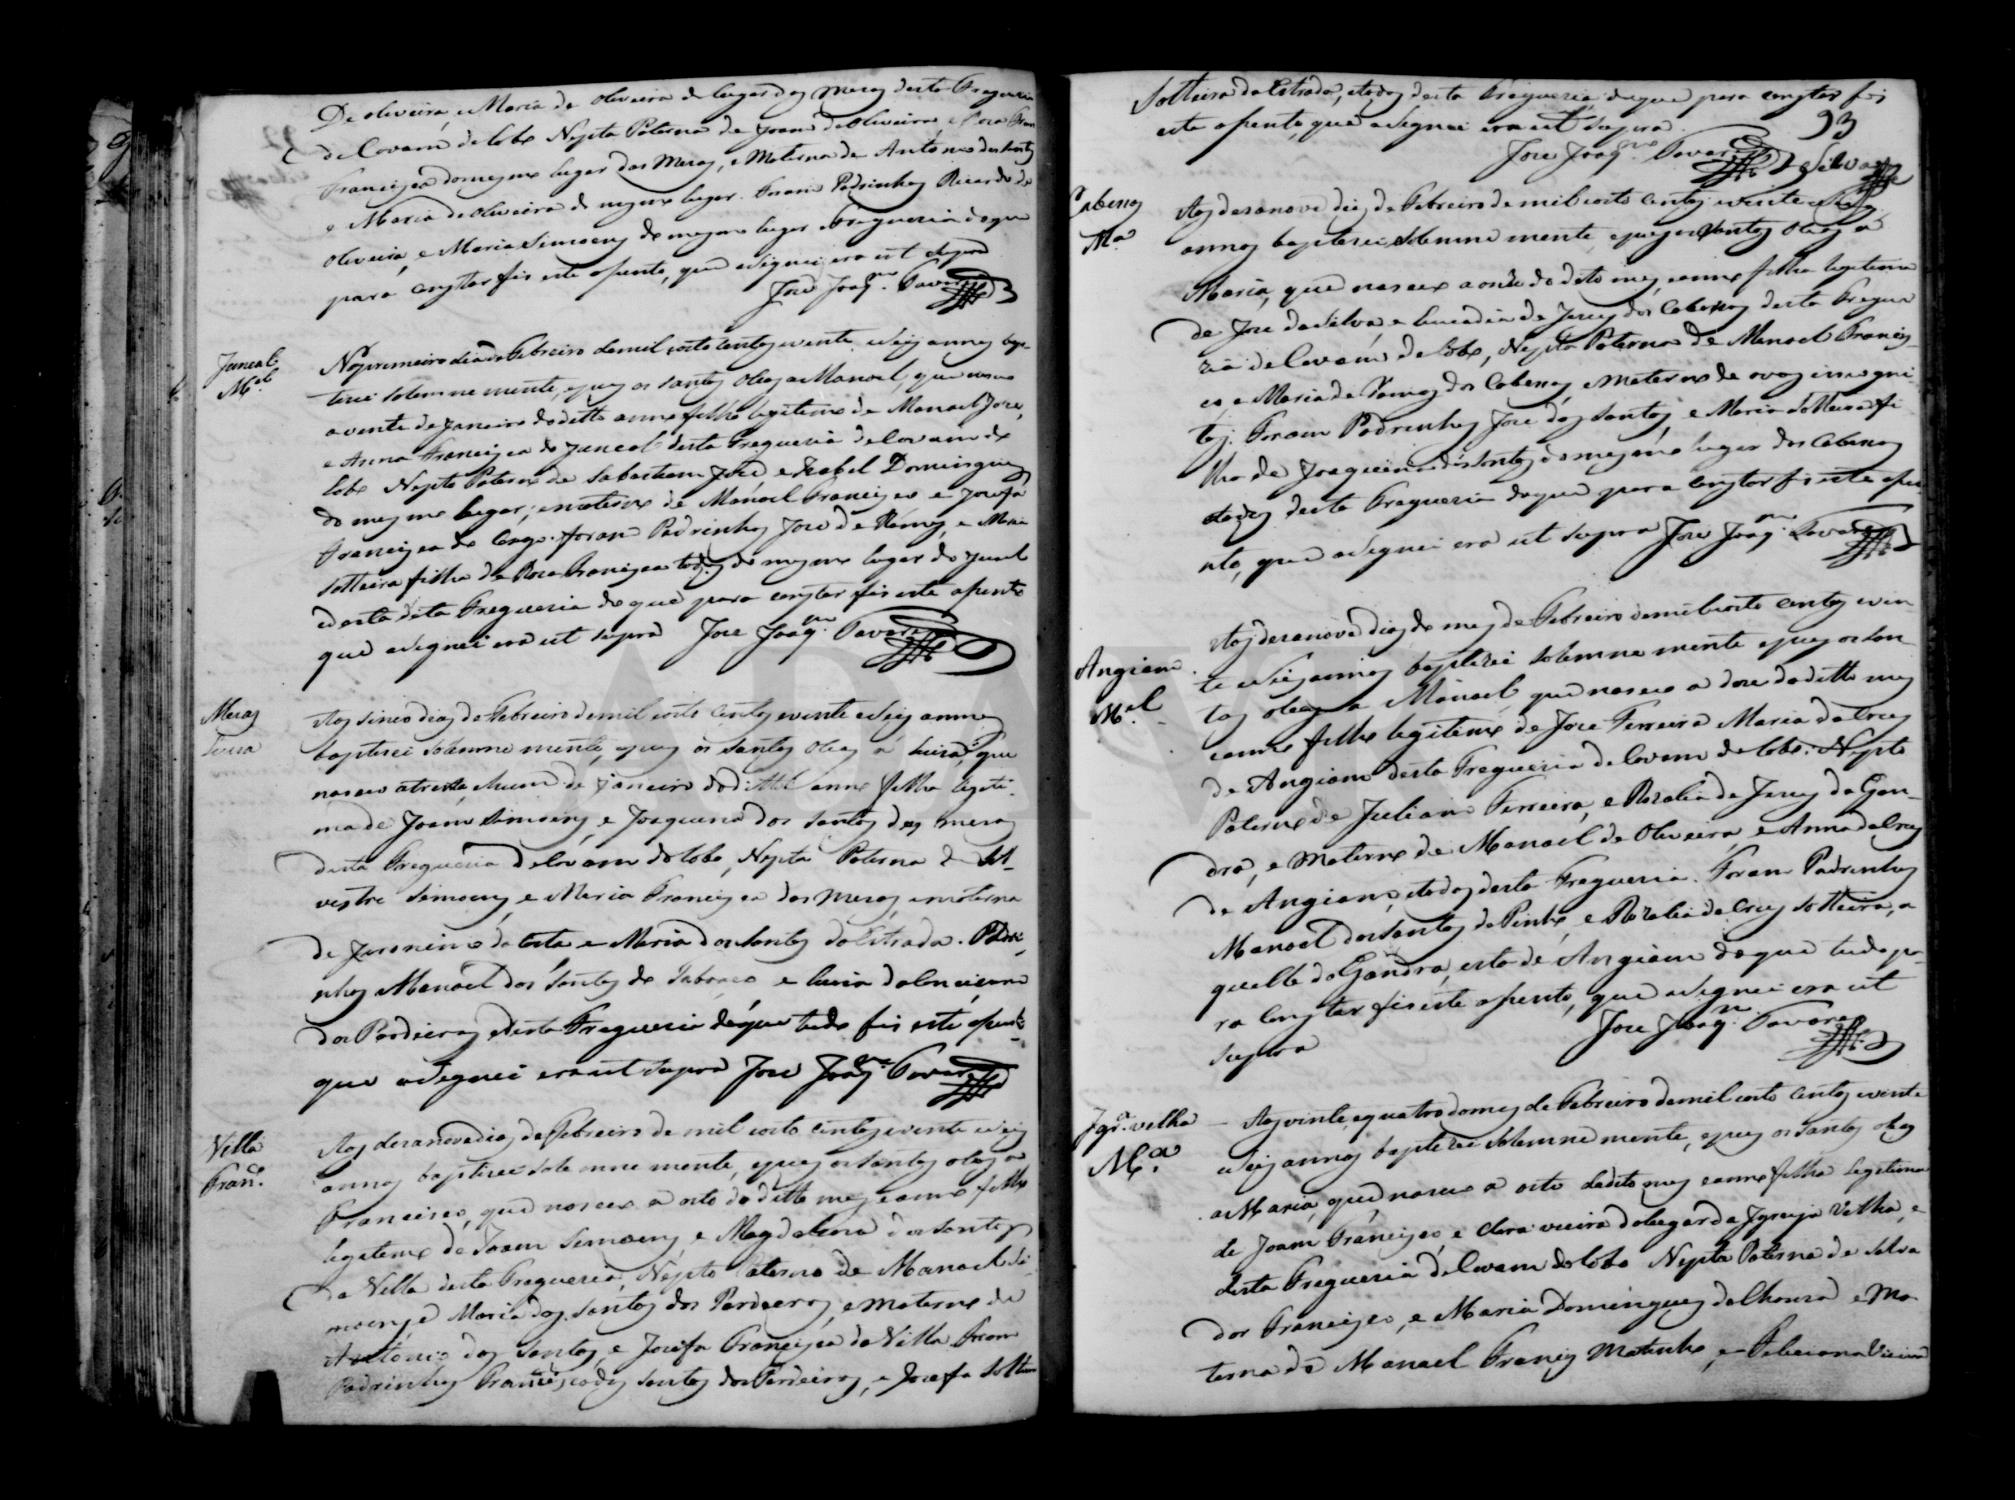 De oliveira, e Maria de oliveira do lugar das Mesas desta Freguezia
de Covam do Lobo Nepta Paterna de Joam de Oliveira, e Roza
Francisca do mesmo lugar das Mesas, e Materna de Antonio dos Santos
e Maria de Oliveira do mesmo lugar. Foram Padrinhos Ricardo de
Oliveira, e Maria Simoens do mesmo lugar e Freguezia do que
para constar fis este asento, que asignei era ut supra
Joze Joaqm. Tavares
Juncal
Mel
No primeiro dia de Febreiro de mil oito centos e vinte e seis annos bap-
tizei solemne mente, e pus os santos oleos a Manoel, que nasceo
a vinte de Janeiro do ditto anno filho legitimo de Manoel Joze,
e Anna Francisca do Juncal desta Freguezia de Covam do
Lobo Nepto Paterno de Sabastiam Joze e Izabel Domingues
do mesmo lugar, e materno de Manoel Francisco e Josefa
Francisca do . Foram Padrinhos Joze de Ramos, e Maria
solteira filha de Roza Francisca todos do mesmo lugar do Juncal
e desta dita Freguezia do que para constar fis este asento
que asignei era ut supra Joze Joaqm. Tavares
Mesas
Luiza
Aos sinco dias de Febreiro de mil oito centos e vinte e seis annos
baptizei solemne mente, e pus os santos oleos a Luiza, que
nasceo a trinta, e hum de Janeiro do ditto anno filha legiti-
ma de Joam Simoens, e Joaquina dos Santos das mesas
desta Freguezia de Covam do Lobo, Nepta Paterna de Sil-
vestre Simoens, e Maria Francisca das Mesas, e materna
de Jeronimo da Costa e Maria dos Santos da Estrada. Padri-
nhos Manoel dos Santos de e Luiza da Conceisam
dos Pardieiros, desta Freguezia do que tudo fis este asento
que asignei era ut supra Joze Joaqm. Tavares
Villa
Fran.co
Aos desanove dias de Febreiro de mil oito centos e vinte e seis
annos baptizei sole mne mente, e pus os santos oleos a
Francisco, que nasceo a oito do ditto mes e anno filho
legitimo de Joam Simoens, e Magdalena dos Santos
da Villa desta Freguezia, Nepto Paterno de Manoel Si-
moens, e Maria dos Santos dos Pardieiros, e Materno de
Antonio dos Santos, e Josefa Francisca da Villa Foram
Padrinhos Francisco dos Santos dos Pardieiros, e Josefa solteira
Solteira da Estrada, e todos desta Freguezia do que para constar fis
este asento, que asignei era ut supra.
93
Joze Joaqm. Tavares da Silva
Cabesas
Ma.
Aos desanove dias de Febreiro de mil oito centos e vinte e seis
annos baptizei solemne mente, e pus os santos oleos a
Maria, que nasceo a onze do dito mes, e anno filha legitima
de Joze da Silva, e Leucadia de Jesus dos Cabesos desta Fregue-
zia de Covam do Lobo, Nepta Paterna de Manoel Francis-
co e Maria de Ramos dos Cabesos, e Materna de avos incogni-
tos. Foram Padrinhos Joze dos Santos, e Maria solteira fi-
lha de Joaquim dos Santos do mesmo lugar dos Cabesos
e todos desta Freguezia do que para constar fis este ase-
nto, que asignei era ut supra Joze Joaqm. Tavares
Angiam
Mel
Aos desanove dias do mes de Febreiro de mil oito centos e vin-
te e seis annos baptizei solemne mente e pus os san-
tos oleos a Manoel que nasceo a doze do ditto mes
e anno filho legitimo de Joze Ferreira Maria da Cruz
de Angiam desta Freguezia de Covam do Lobo. Nepto
Paterno de Juliam Ferreira, e Rozalia de Jesus da Gan-
dra, e Materno de Manoel de Oliveira, e Anna da Cruz
de Angiam, e todos desta Freguezia. Foram Padrinhos
Manoel dos Santos do Pinho, e Rozalia da Cruz solteira, a
quelle da Gandra, esta de Angiam do que tudo pa-
ra constar fis este asento, que asignei era ut
supra
Joze Joaqm. Tavares
Igra. velha
Ma.
Aos vinte, e quatro do mes de Febreiro de mil oito centos e vinte
e seis annos baptizei solemne mente, e pus os santos oleos
a Maria, que nasceo a oito do dito mes e anno filha legitima
de Joam Francisco, e Clara vieira do lugar da Igreija Velha, e
desta Freguezia de Covam do Lobo Nepta Paterna de Salva
dor Francisco, e Maria Domingues da e Ma-
terna de Manoel Francis Matinho, e Feliciana Vieira